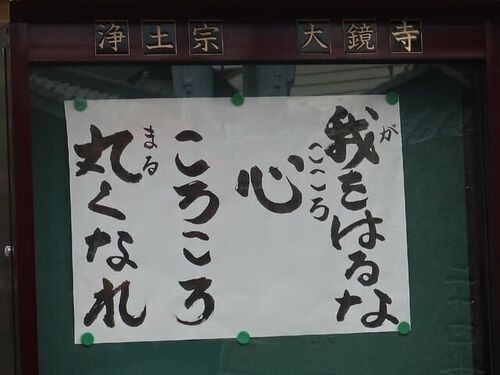 浄土宗 大鏡寺
我をはるな
が
心
こころ
ころころ
丸くなれ
まる